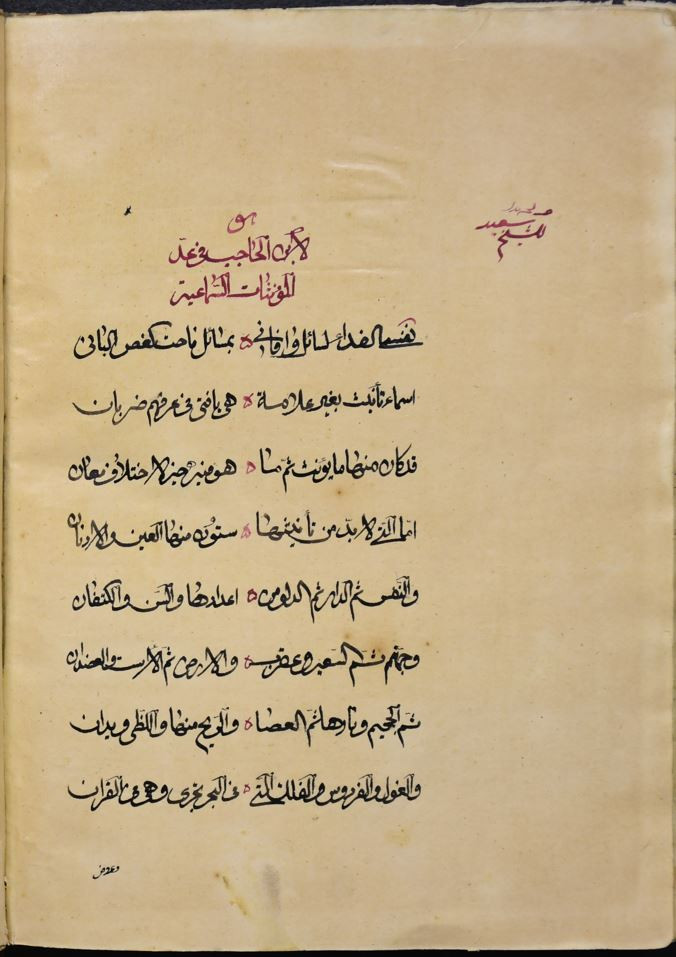 هو
لابن الحاجب في عدّ
المؤنثات السّماعية
للشيخ سعيد
نفسي الفداء لسائل وافاني ه بمسائل فاحت كغصن البان
اسماء تأنيث بغير علامة ه هي يا فتى في عرفهم ضربان
قد كان منها ما يؤنث ثم ما ه هو فيه خير لاختلاف معان
امّا الّتي لا بدّ من تأنيثها ه ستون منها العين والاذنان
والنّفس ثم الدار ثم الدلو من ه اعدادها والسّن والكتفان
وجهنم ثم السّعير وعقرب ه والارض ثم الاست والعضدان
ثم الجحيم ونارها ثم العصا ه والرّيح منها واللّظى ويدان
والغول والفردوس والفلك الّتي ه في البحر تجري وهي في القران
وعروض